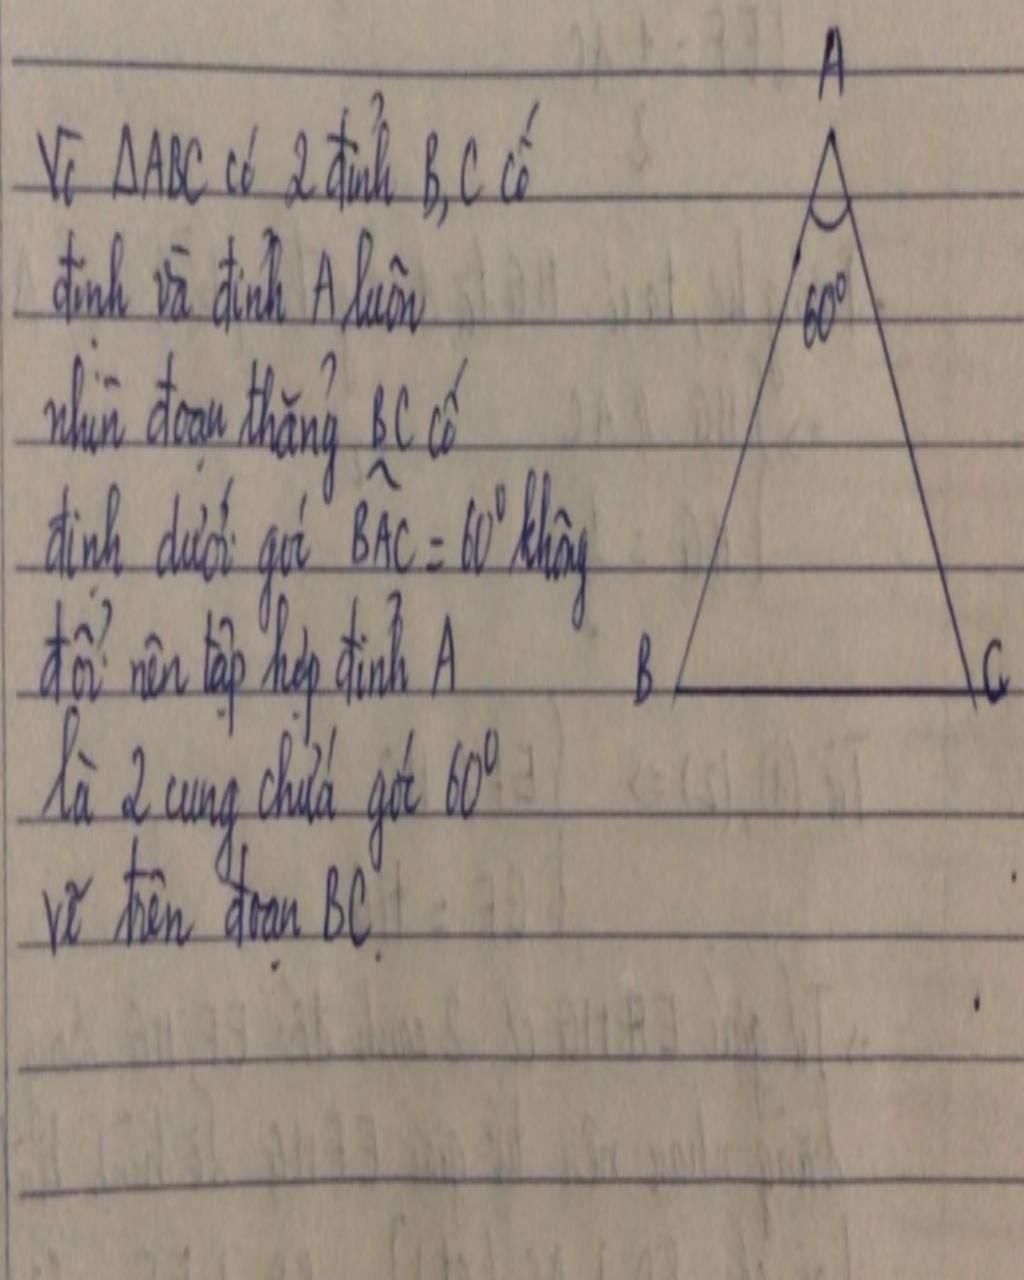 A
Vì ΔABC có 2 đỉnh B, C cố
định và đỉnh A luôn
60⁰
nhìn đoạn thẳng BC cố
định dưới gói BAC = 60⁰ không
đổi nên tập hợp đỉnh A
B C
là 2 cung chứa góc 60⁰
vẽ trên đoạn BC.